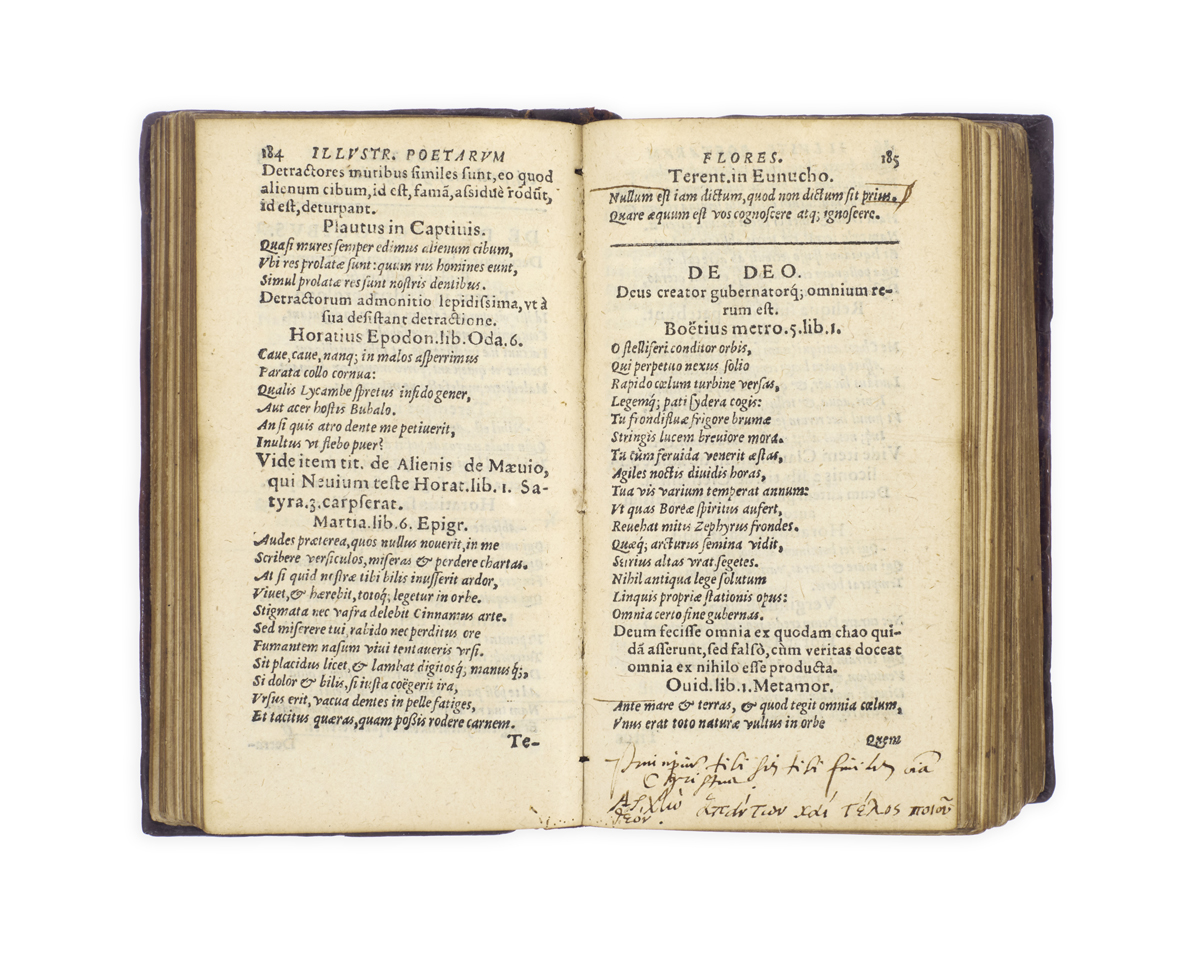 184 ILLVSTR. POETARVM
Detractores muribus similes sunt, eo quod
alienum cibum, id est, famã, assiduè rodũt,
id est, deturpant.
Plautus in Captiuis.
Quasi mures semper edimus alienum cibum,
Vbi res prolatæ sunt: quum rus homines eunt,
Simul prolatæ res sunt nostris dentibus.
Detractorum admonitio lepidissima, vt à
sua desistant detractione.
Horatius Epodon. lib. Oda. 6.
Caue, caue, nanq; in malos asperrimus
Parata collo cornua:
Qualis Lycambe spretus infido gener,
Aut acer hostis Bubalo.
An si quis atro dente me petiuerit,
Inultus vt flebo puer?
Vide item tit. de Alienis de Mæuio,
qui Neuium teste Horat. lib. 1. Sa-
tyra. 3. carpserat.
Martia. lib. 6. Epigr.
Audes præterea, quos nullus nouerit, in me
Scribere versiculos, miseras & perdere chartas.
At si quid nostræ tibi bilis inusserit ardor,
Viuet, & hærebit, totoq; legetur in orbe.
Stigmata nec vafra delebit Cinnamus arte.
Sed miserere tui, rabido nec perditus ore
Fumantem nasum viui tentaueris vrsi.
Sit placidus licet, & lambat digitosq; manusq;,
Si dolor & bilis, si iusta coëgerit ira,
Vrsus erit, vacua dentes in pelle fatiges,
Et tacitus quæras, quam possis rodere carnem.
Te-
FLORES. 185
Terent. in Eunucho.
Nullum est iam dictum, quod non dictum sit prim.
Quare æquum est vos cognoscere atq; ignoscere.
DE DEO.
Deus creator gubernatorq; omnium re-
rum est.
Boëtius metro. 5. lib. 1.
O stelliferi conditor orbis,
Qui perpetuo nexus solio
Rapido cœlum turbine versas,
Legemq; pati sydera cogis:
Tu frondifluæ frigore brumæ
Stringis lucem breuiore mora.
Tu cùm feruida venerit æstas,
Agiles noctis diuidis horas,
Tua vis varium temperat annum:
Vt quas Boreæ spiritus aufert,
Reuehat mitis Zephyrus frondes.
Quæq; arcturus semina vidit,
Sirius altas vrat segetes.
Nihil antiqua lege solutum
Linquis propriæ stationis opus:
Omnia certo fine gubernas.
Deum fecisse omnia ex quodam chao qui-
dã asserunt, sed falsò, cùm veritas doceat
omnia ex nihilo esse producta.
Ouid. lib. 1. Metamor.
Ante mare & terras, & quod tegit omnia cœlum,
Vnus erat toto naturæ vultus in orbe
Quem
tibi sis tibi
Christus
ἁπάντων καί τέλος ποιοῦ